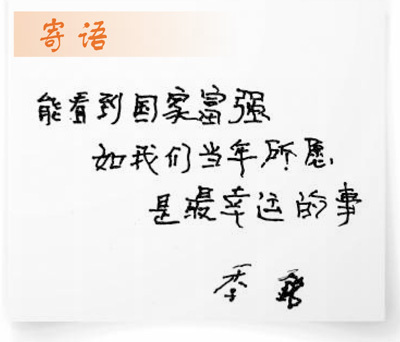 寄语
能看到国家富强
如我们当年所愿，
是最幸运的事